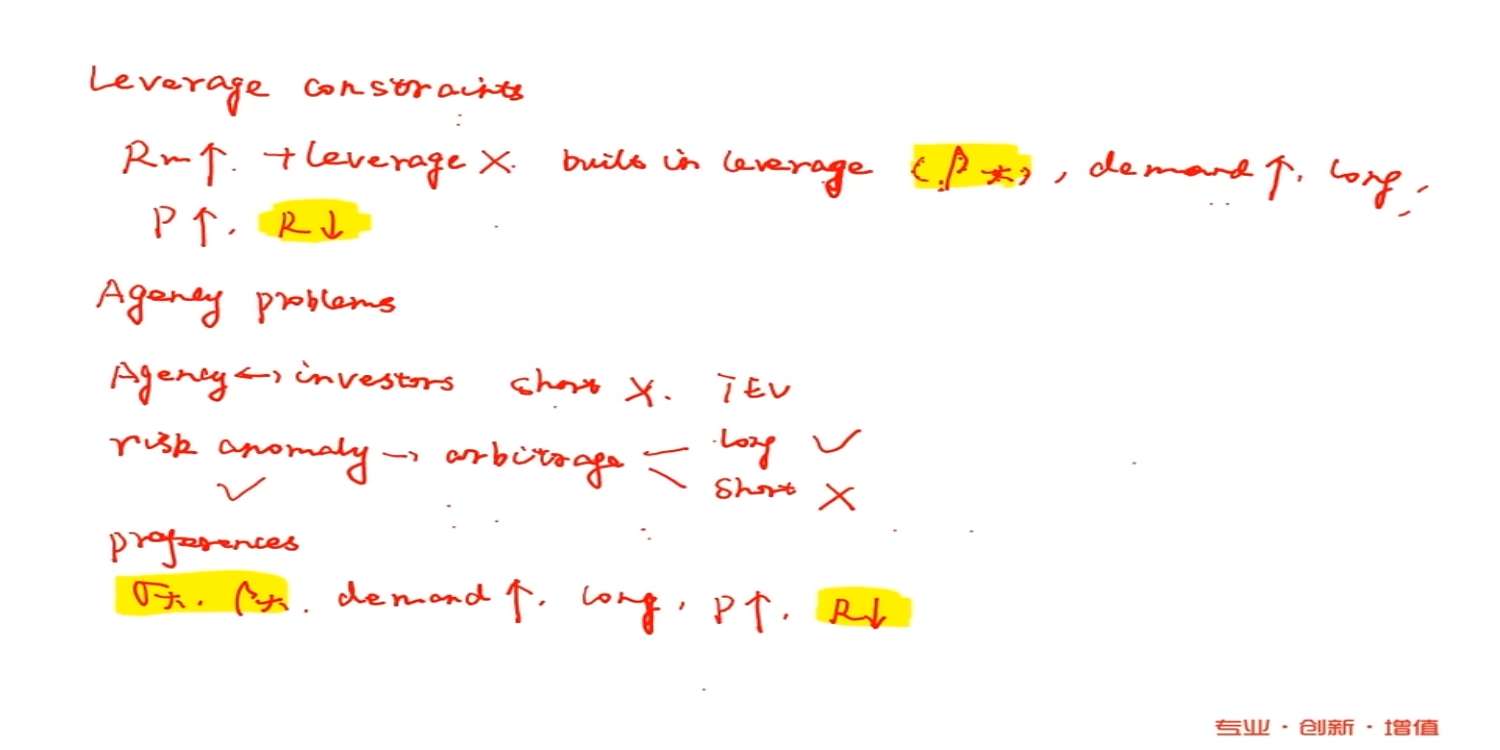 Leverage constraints
Rm↑. +leverage ×. built in leverage (β大), demand↑. long,
P↑. R↓
Agency problems
Agency↔investors short ×. TEV
risk anomaly → arbitrage long ✓
✓ short ×
preferences
σ大. β大. demand↑. long, P↑. R↓
专业·创新·增值